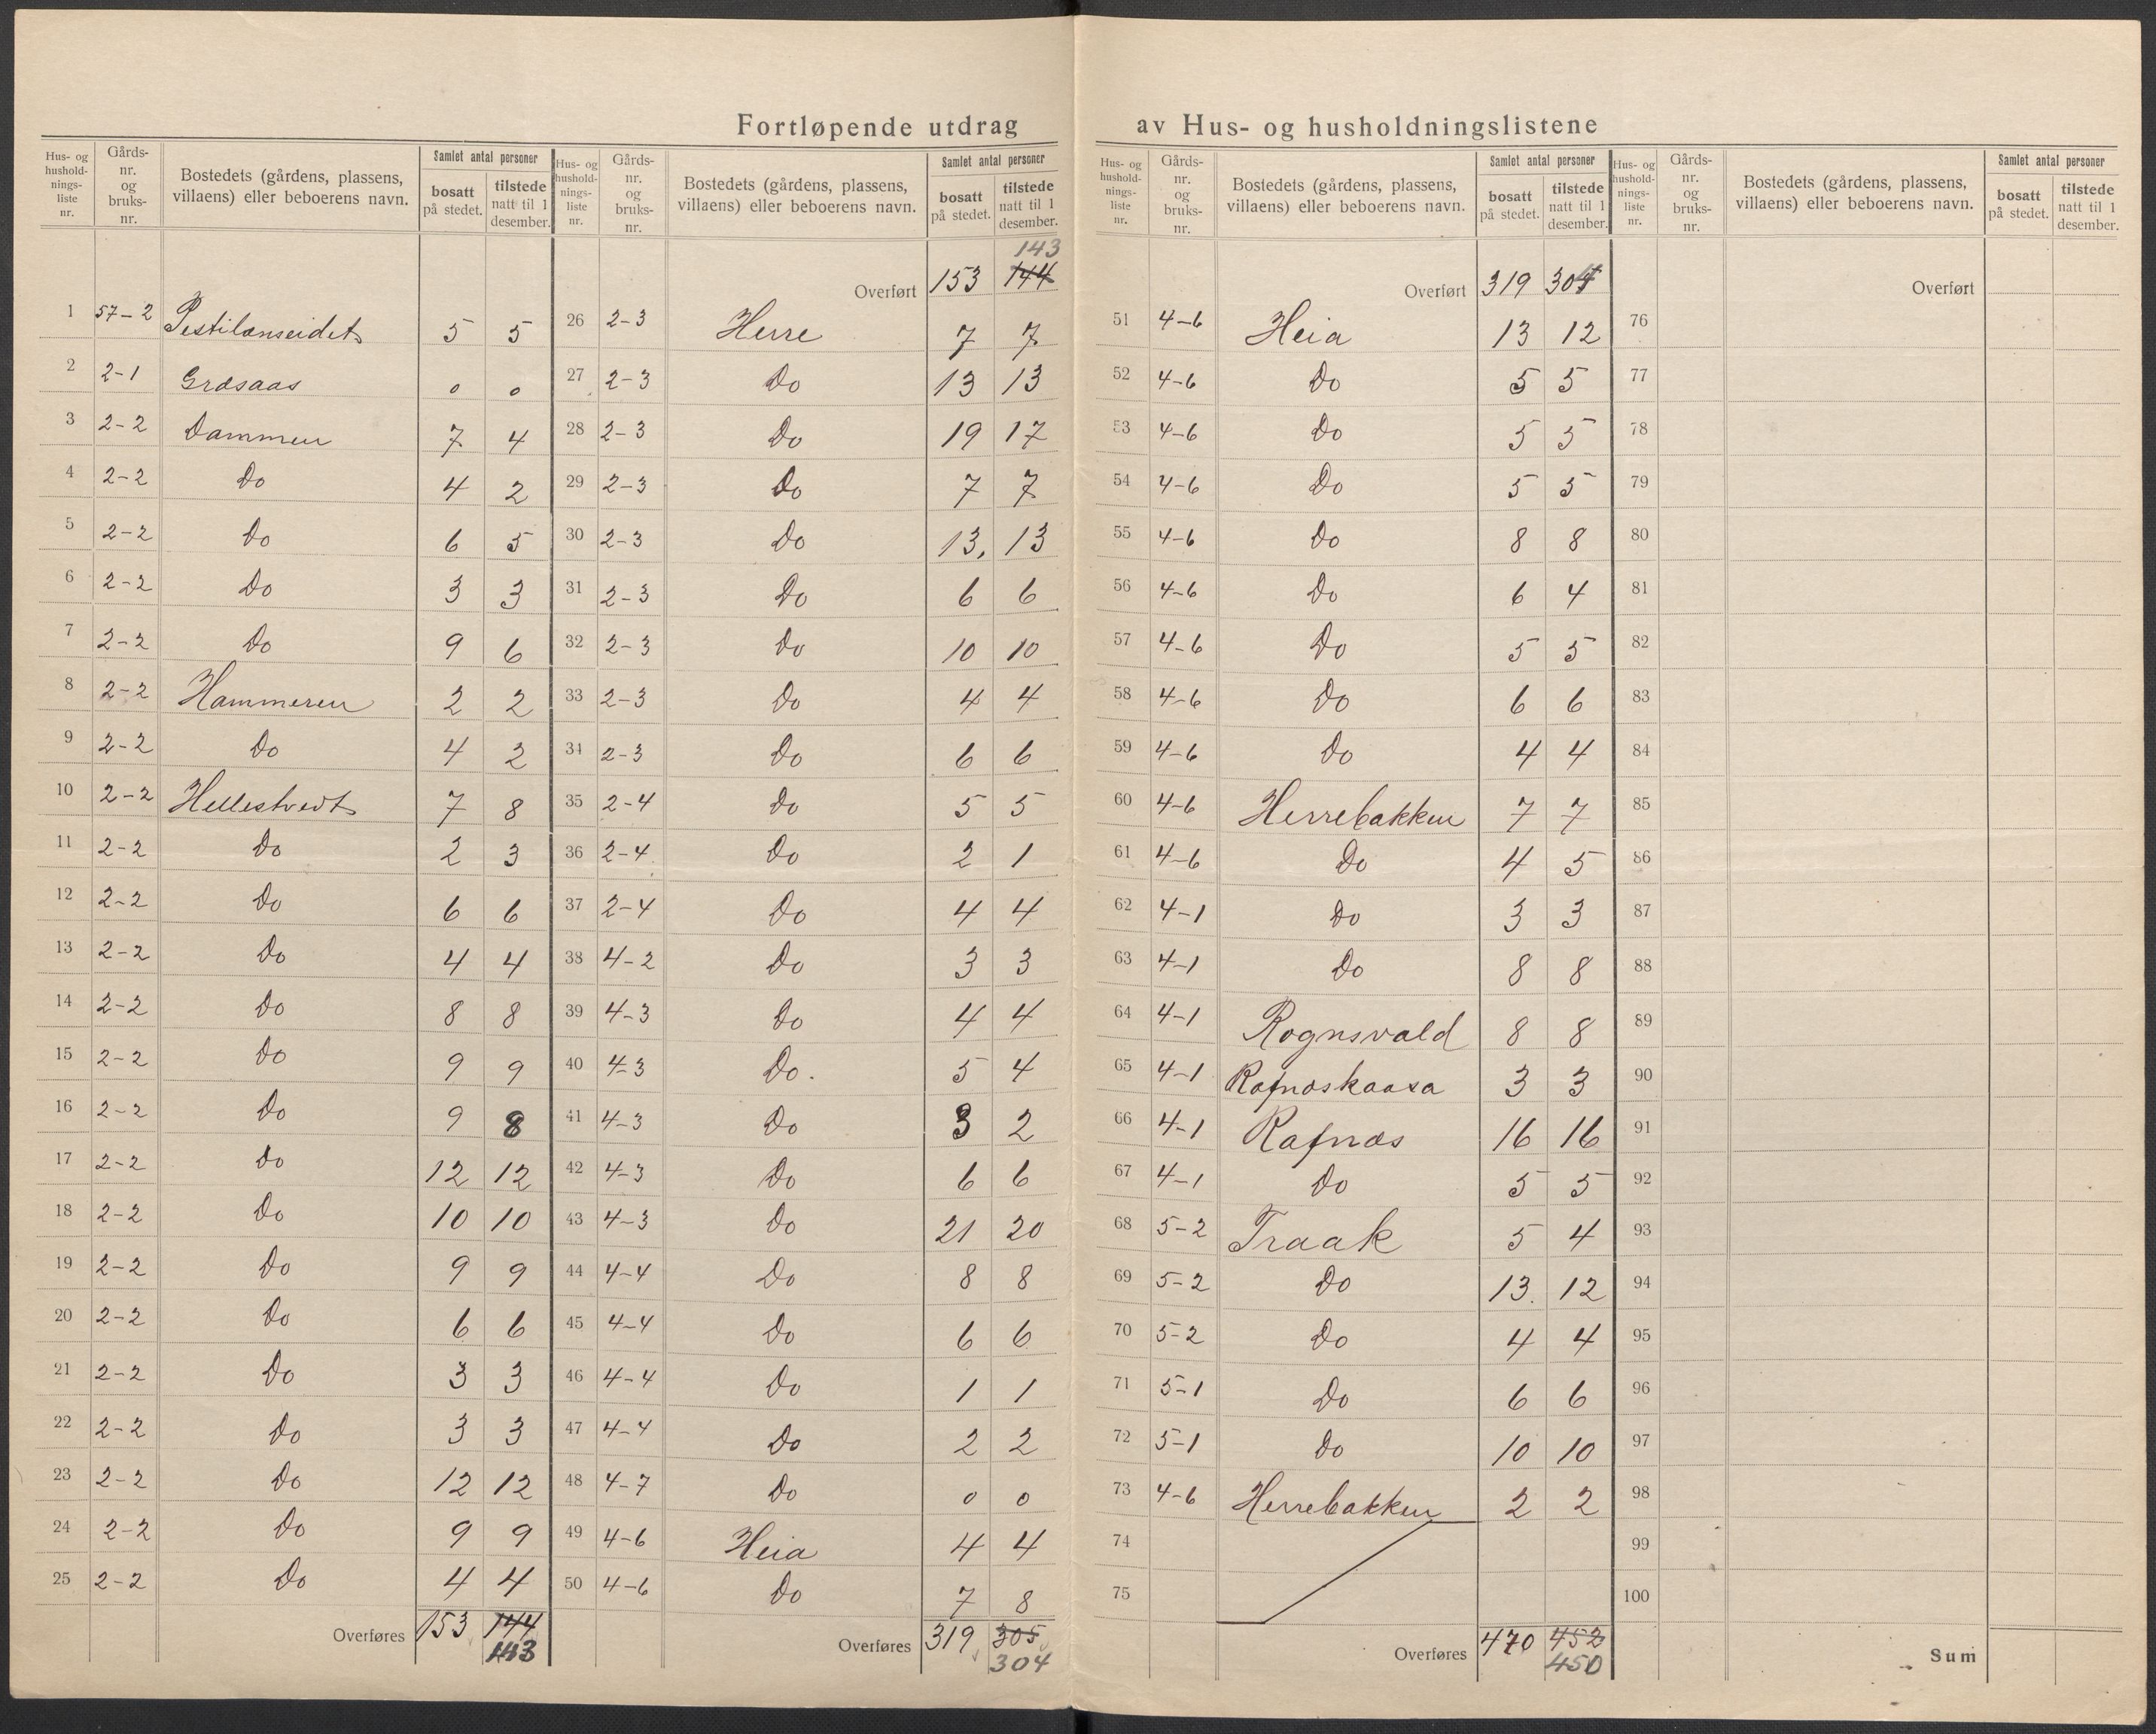 Fortløpende utdrag av Hus- og husholdningslistene
Hus- og hushold-nings-liste nr. Gårds-nr. og bruks-nr. Bostedets (gårdens, plassens, villaens) eller beboerens navn. Samlet antal personer bosatt på stedet. tilstede natt til 1 desember.
1 57-2 Pestilænseidet 5 5
2 2-1 Græsaas 0 0
3 2-2 Dammen 7 4
4 2-2 Do 4 2
5 2-2 Do 6 5
6 2-2 Do 3 3
7 2-2 Do 9 6
8 2-2 Hammeren 2 2
9 2-2 Do 4 2
10 2-2 Hellestvedt 7 8
11 2-2 Do 2 3
12 2-2 Do 6 6
13 2-2 Do 4 4
14 2-2 Do 8 8
15 2-2 Do 9 9
16 2-2 Do 9 8
17 2-2 Do 12 12
18 2-2 Do 10 10
19 2-2 Do 9 9
20 2-2 Do 6 6
21 2-2 Do 3 3
22 2-2 Do 3 3
23 2-2 Do 12 12
24 2-2 Do 9 9
25 2-2 Do 4 4
Overføres 153 144
143
Hus- og hushold-nings-liste nr. Gårds-nr. og bruks-nr. Bostedets (gårdens, plassens, villaens) eller beboerens navn. Samlet antal personer bosatt på stedet. tilstede natt til 1 desember.
143
Overført 153 144
26 2-3 Herre 7 7
27 2-3 Do 13 13
28 2-3 Do 19 17
29 2-3 Do 7 7
30 2-3 Do 13. 13
31 2-3 Do 6 6
32 2-3 Do 10 10
33 2-3 Do 4 4
34 2-3 Do 6 6
35 2-4 Do 5 5
36 2-4 Do 2 1
37 2-4 Do 4 4
38 4-2 Do 3 3
39 4-3 Do 4 4
40 4-3 Do. 5 4
41 4-3 Do 3 2
42 4-3 Do 6 6
43 4-3 Do 21 20
44 4-4 Do 8 8
45 4-4 Do 6 6
46 4-4 Do 1 1
47 4-4 Do 2 2
48 4-7 Do 0 0
49 4-6 Heia 4 4
50 4-6 Do 7 8
Overføres 319 305
304
Hus- og hushold-nings-liste nr. Gårds-nr. og bruks-nr. Bostedets (gårdens, plassens, villaens) eller beboerens navn. Samlet antal personer bosatt på stedet. tilstede natt til 1 desember.
Overført 319 304
51 4-6 Heia 13 12
52 4-6 Do 5 5
53 4-6 Do 5 5
54 4-6 Do 5 5
55 4-6 Do 8 8
56 4-6 Do 6 4
57 4-6 Do 5 5
58 4-6 Do 6 6
59 4-6 Do 4 4
60 4-6 Herrebakken 7 7
61 4-6 Do 4 5
62 4-1 Do 3 3
63 4-1 Do 8 8
64 4-1 Rognsvald 8 8
65 4-1 Rafnæskaasa 3 3
66 4-1 Rafnæs 16 16
67 4-1 Do 5 5
68 5-2 Traak 5 4
69 5-2 Do 13. 12
70 5-2 Do 4 4
71 5-1 Do 6 6
72 5-1 Do 10 10
73 4-6 Herrebakken 2 2
74
75
Overføres 470 452
450
Hus- og hushold-nings-liste nr. Gårds-nr. og bruks-nr. Bostedets (gårdens, plassens, villaens) eller beboerens navn. Samlet antal personer bosatt på stedet. tilstede natt til 1 desember.
Overført
76
77
78
79
80
81
82
83
84
85
86
87
88
89
90
91
92
93
94
95
96
97
98
99
100
Sum